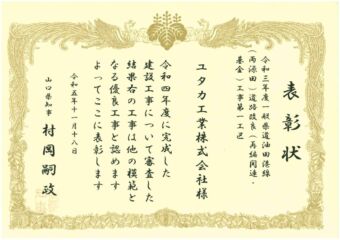 表彰状
令和三年度一般県道油田港線
(両源田)道路改良(再編関連・
基金)工事第一工区
ユタカ工業株式会社様
令和四年度に完成した
建設工事について審査した
結果右の工事は他の模範と
なる優良工事と認めます
よってここに表彰します
令和五年十一月十八日
山口県知事 村岡嗣政